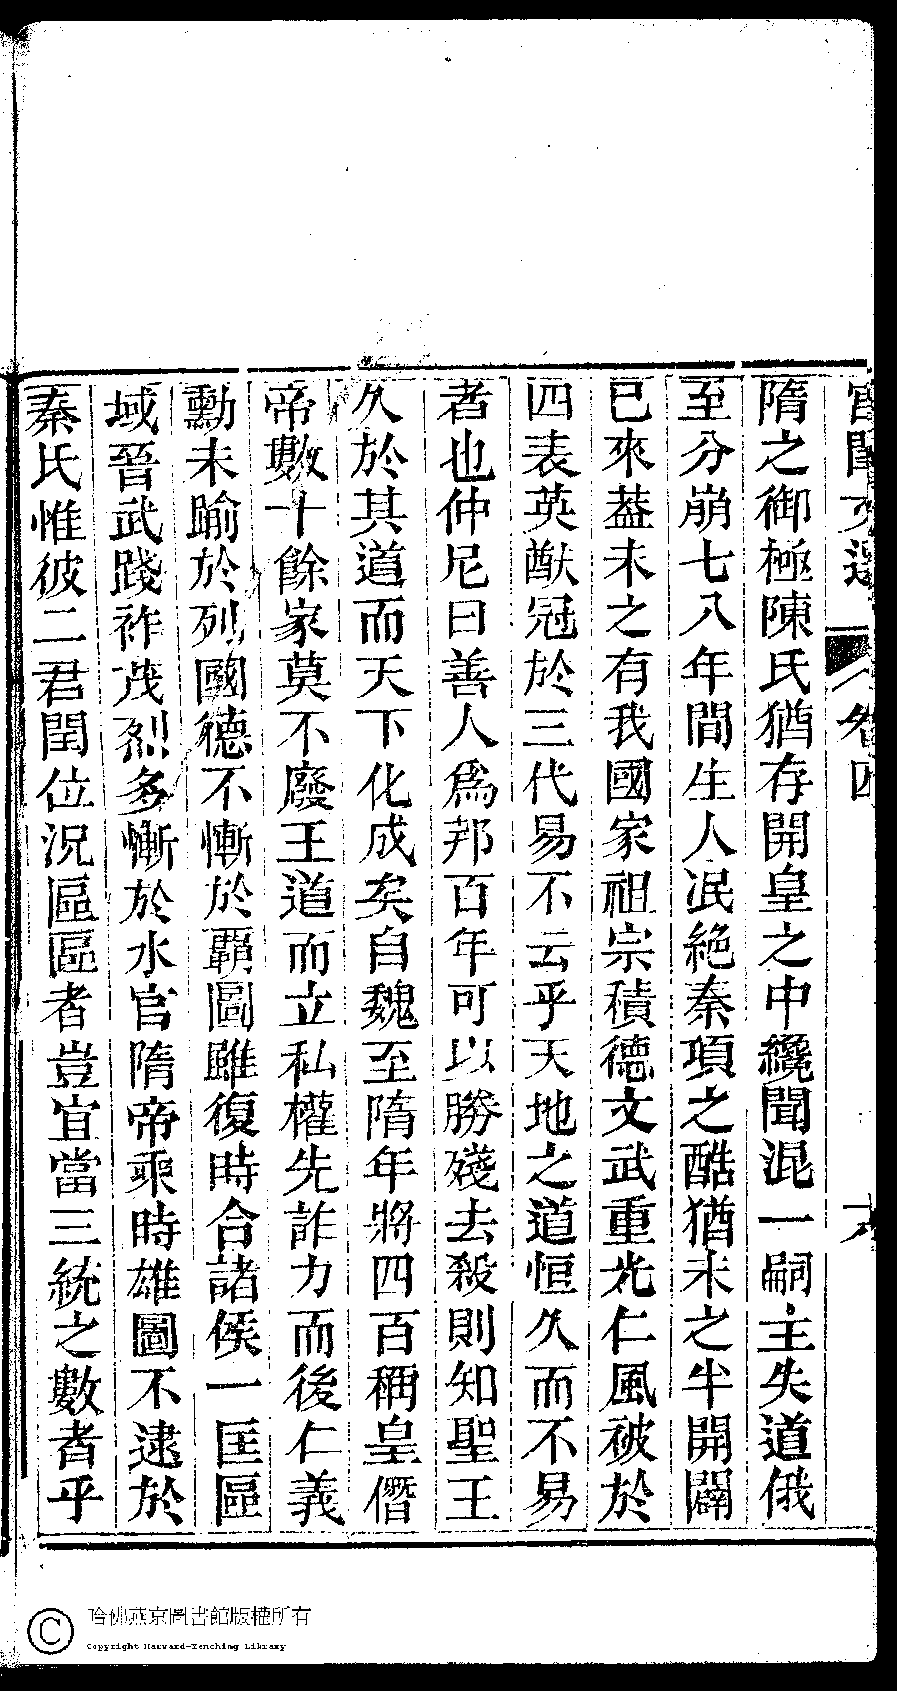 隋之御極陳氏猶存開皇之中纔聞混一嗣主失道俄
至分崩七八年間生人泯絶秦項之酷猶未之半開闢
已來葢未之有我國家祖宗積德文武重光仁風被於
四表英猷冠於三代易不云乎天地之道恒久而不易
者也仲尼曰善人爲邦百年可以勝殘去殺則知聖王
久於其道而天下化成矣自魏至隋年將四百稱皇僭
帝數十餘家莫不廢王道而立私權先詐力而後仁義
勳未踰於列國德不慚於覇圖雖復時合諸侯一匡區
域晉武踐祚茂烈多慚於水官隋帝乘時雄圖不逮於
秦氏惟彼二君閏位況區區者豈宜當三統之數者乎
哈佛燕京圖書館版權所有
Copyright Harvard-Yenching Library